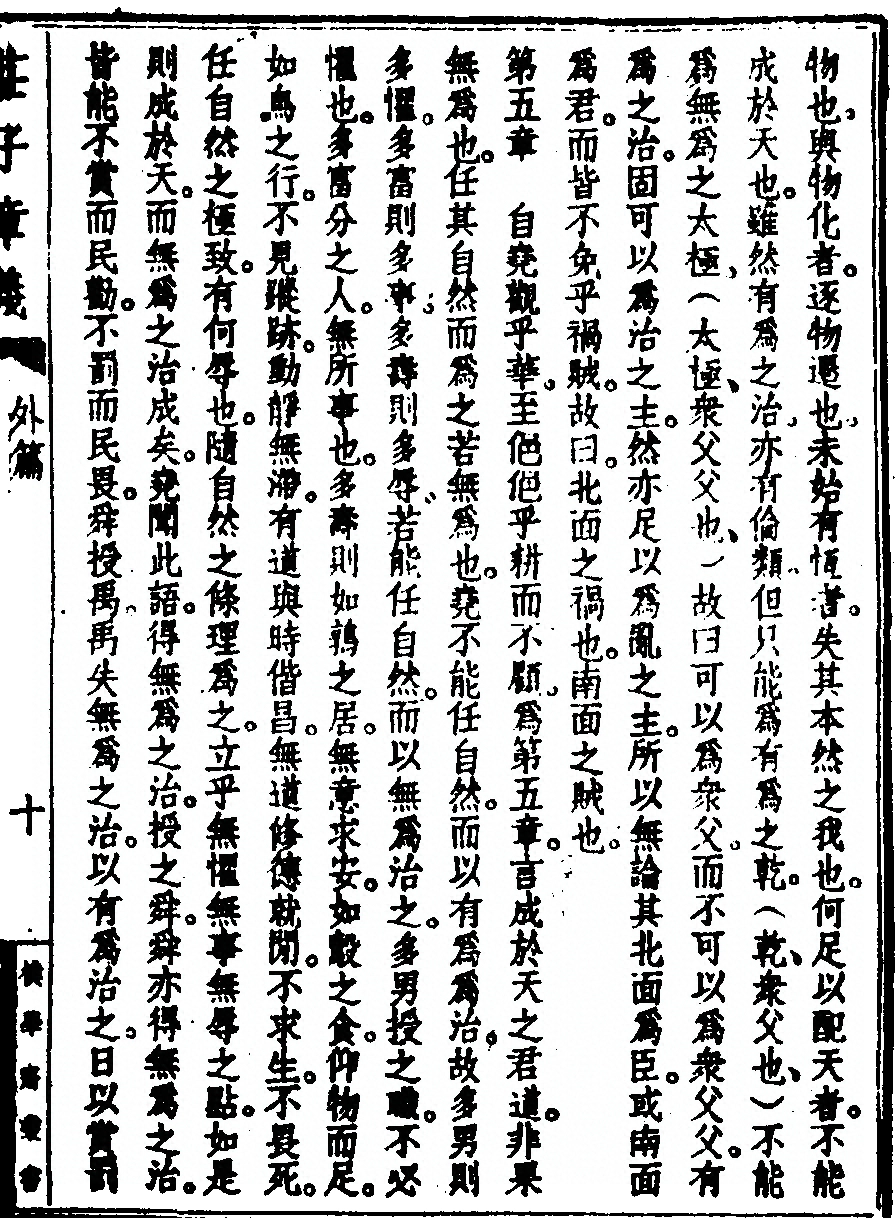 物也、與物化者。逐物遷也、未始有恆者。失其本然之我也。何足以配天者。不能
成於天也。雖然有爲之治、亦有倫類、但只能爲有爲之乾。(乾、衆父也、)不能
爲無爲之太極、(太極、衆父父也、)故曰可以爲衆父。而不可以爲衆父父。有
爲之治。固可以爲治之主。然亦足以爲亂之主。所以無論其北面爲臣。或南面
爲君。而皆不免乎禍賊。故曰。北面之禍也。南面之賊也。
第五章　自堯觀乎華、至俋俋乎耕而不顧、爲第五章。言成於天之君道。非果
無爲也。任其自然而爲之若無爲也。堯不能任自然。而以有爲爲治。故多男則
多懼。多富則多事、多壽則多辱、若能任自然。而以無爲治之。多男授之職。不必
懼也。多富分之人。無所事也。多壽則如鶉之居。無意求安。如鷇之食。仰物而足。
如鳥之行。不見蹤跡。動靜無滯。有道與時偕昌。無道修德就閒。不求生。不畏死。
任自然之極致。有何辱也。隨自然之條理爲之。立乎無懼無事無辱之點。如是
則成於天。而無爲之治成矣。堯聞此語。得無爲之治。授之舜。舜亦得無爲之治。
皆能不賞而民勸。不罰而民畏。舜授禹。禹失無爲之治。以有爲治之。日以賞罰
莊子章義
外篇
十
橫學齋叢書